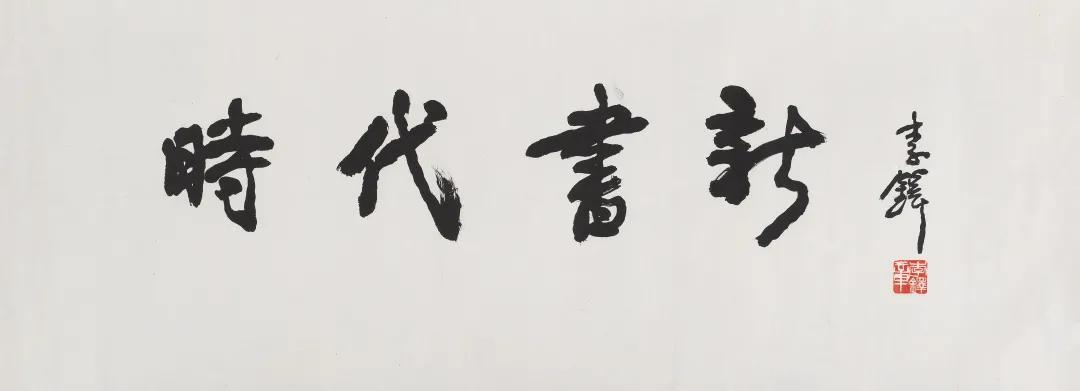 時代書新
李鐸
李鐸